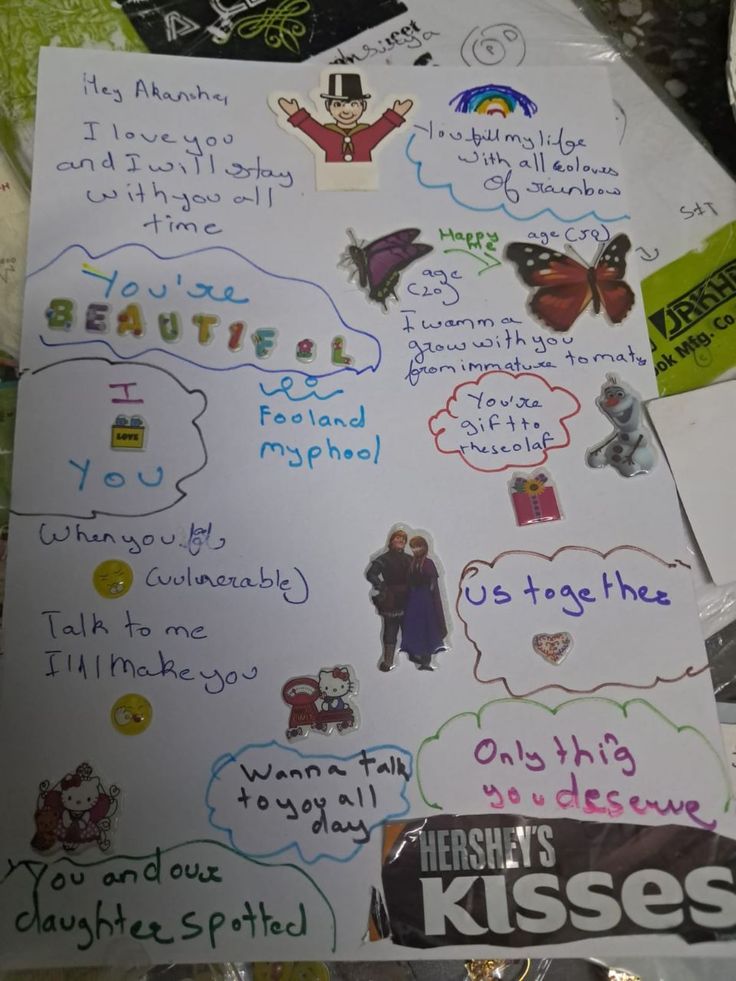 Hey Akansha,
I love you
and I will stay
with you all
time
You fill my life
with all colours
of rainbow
Happy
me
age
(20)
age (50)
I wanna
grow with you
from immature to
You're
BEAUTIFUL
I
LOVE
YOU
Fool and
my phool
You're
gift to
these olaf
When you
(vulnerable)
Talk to me
I'll make you
us together
Wanna talk
to you all
day
Only thing
you deserve
HERSHEY'S
KISSES
You and our
daughter spotted
SIT
Book Mfg. Co.